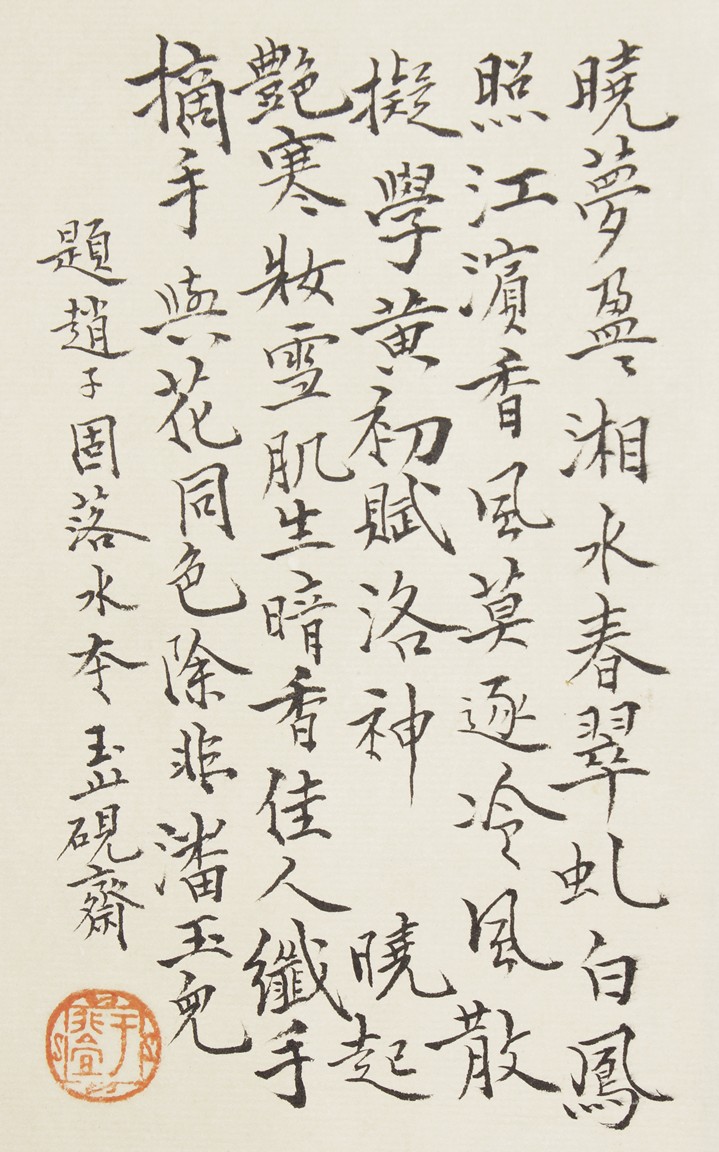 曉夢盈〻湘水春翠虬白鳳
照江濱香風莫逐冷風散
擬學黃初賦洛神 曉起
艷寒妝雪肌生暗香佳人纖手
摘手與花同色除非潘玉兒
題趙子固落水夲 硯齋